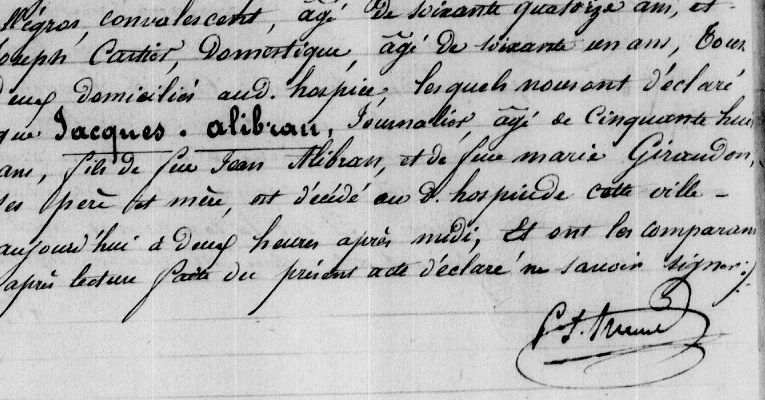 Négros, convalescent, âgé de soixante quatorze ans, et
Joseph Cartier, Domestique, âgé de soixante un ans, Tous
deux domiciliés aud. hospice, lesquels nous ont déclaré
que Jacques. alibran, Journalier, âgé de Cinquante huit
ans, fils de feu Jean Alibran, et de feue marie Giraudon,
ses père et mère, est décédé au d. hospice de cette ville -
aujourd'hui à deux heures après midi, Et ont les comparans
après lecture faite du présent acte déclaré ne savoir signer.